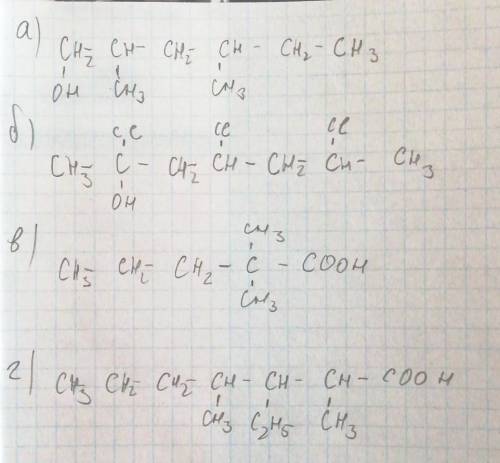 а) CH2- CH- CH2- CH- CH2- CH3
OH CH3 CH3
Cl Cl Cl
б) CH3- C- CH2- CH- CH2- CH- CH3
OH
CH3
в) CH3- CH2- CH2- C- COOH
CH3
г) CH3- CH2- CH2- CH- CH- CH- COOH
CH3 C2H5 CH3